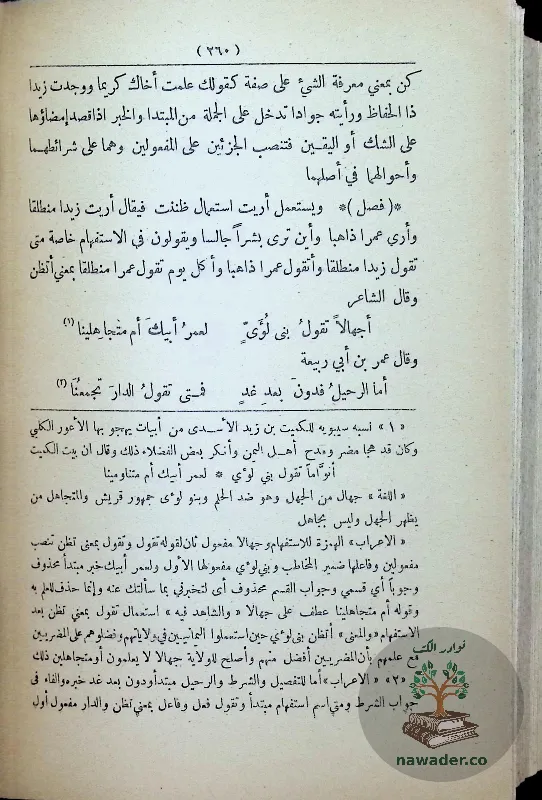 ( ٢٦٠ )
كن بمعني معرفة الشئ على صفة كقولك علمت أخاك كريما ووجدت زيدا
ذا الحفاظ ورأيته جوادا تدخل على الجملة من المبتدا والخبر اذا قصد إمضاؤها
على الشك أو اليقين فتنصب الجزئين على المفعولين وهما على شرائطهما
وأحوالهما في أصلهما
*( فصل )* ويستعمل أريت استعمال ظننت فيقال أريت زيدا منطلقا
وأرى عمرا ذاهبا وأين ترى بشراً جالسا ويقولون في الاستفهام خاصة متى
تقول زيدا منطلقا وأتقول عمرا ذاهبا وأكل يوم تقول عمرا منطلقا بمعني أتظن
وقال الشاعر
أجهالاً تقولُ بنى لُؤَىّ لعمرُ أبيكَ أم متجاهلينا (١)
وقال عمر بن أبي ربيعة
أما الرحيلُ فدونَ بعدِ غدٍ فمتى تقولُ الدارَ تجمعُنَا (٢)
« ١ » نسبه سيبويه للكميت بن زيد الأسدى من أبيات يهجو بها الأعور الكلبي
وكان قد هجا مضر ومدح أهل اليمن وأنكر بعض الفضلاء ذلك وقال ان بيت الكميت
أنوّاماً تقول بني لؤي * لعمر أبيك أم متناومينا
« اللغة » جهال من الجهل وهو ضد الحلم وبنو لوئى جمهور قريش والمتجاهل من
يظهر الجهل وليس بجاهل
« الاعراب » الهمزة للاستفهام وجهالا مفعول ثان لقوله تقول وتقول بمعنى تظن تنصب
مفعولين وفاعلها ضمير المخاطب وبني لوئي مفعولها الأول ولعمر أبيك خبر مبتدأ محذوف
وجوباً أي قسمي وجواب القسم محذوف أى لتخبرني بما سألتك عنه وإنما حذف للعلم به
وقوله أم متجاهلينا عطف على جهالا « والشاهد فيه » استعمال تقول بمعني تظن بعد
الاستفهام « والمعنى » أتظن بنى لوئي حين استعملوا اليمانيين في ولاياتهم وفضلوهم على المضريين
مع علمهم بأن المضريين أفضل منهم وأصلح للولاية جهالا لا يعلمون أو متجاهلين ذلك
« ٢ » « الاعراب » أما للتفصيل والشرط والرحيل مبتدأ ودون بعد غد خبره والفاء فى
جواب الشرط ومتى اسم استفهام مبتدأ وتقول فعل وفاعل بمعنى تظن والدار مفعول أول
نوادر الكتب
nawader.co